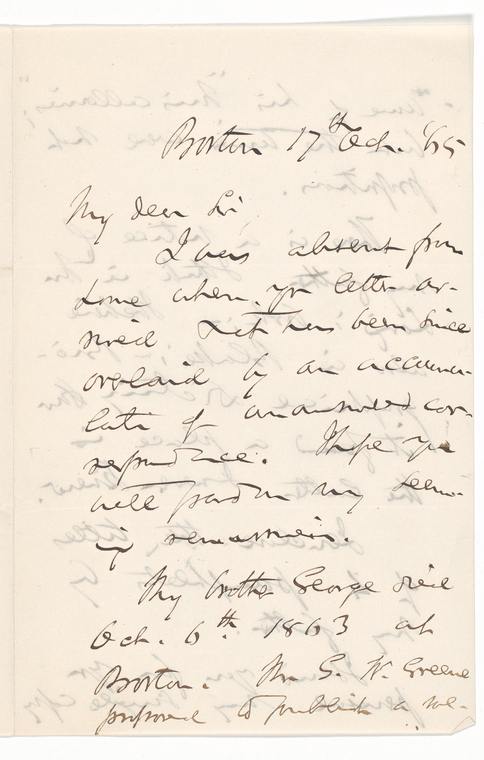 Boston 17th Oct. '65
My dear Sir,
I was absent from
home when yr letter ar-
rived & it has been since
overlaid by an accumu-
lation of unanswered cor-
respondence. I hope you
will pardon my seem-
ing remissness.
My brother George died
Oct. 6th 1863 at
Boston. Mr G. W. Greene
proposed to publish a me-